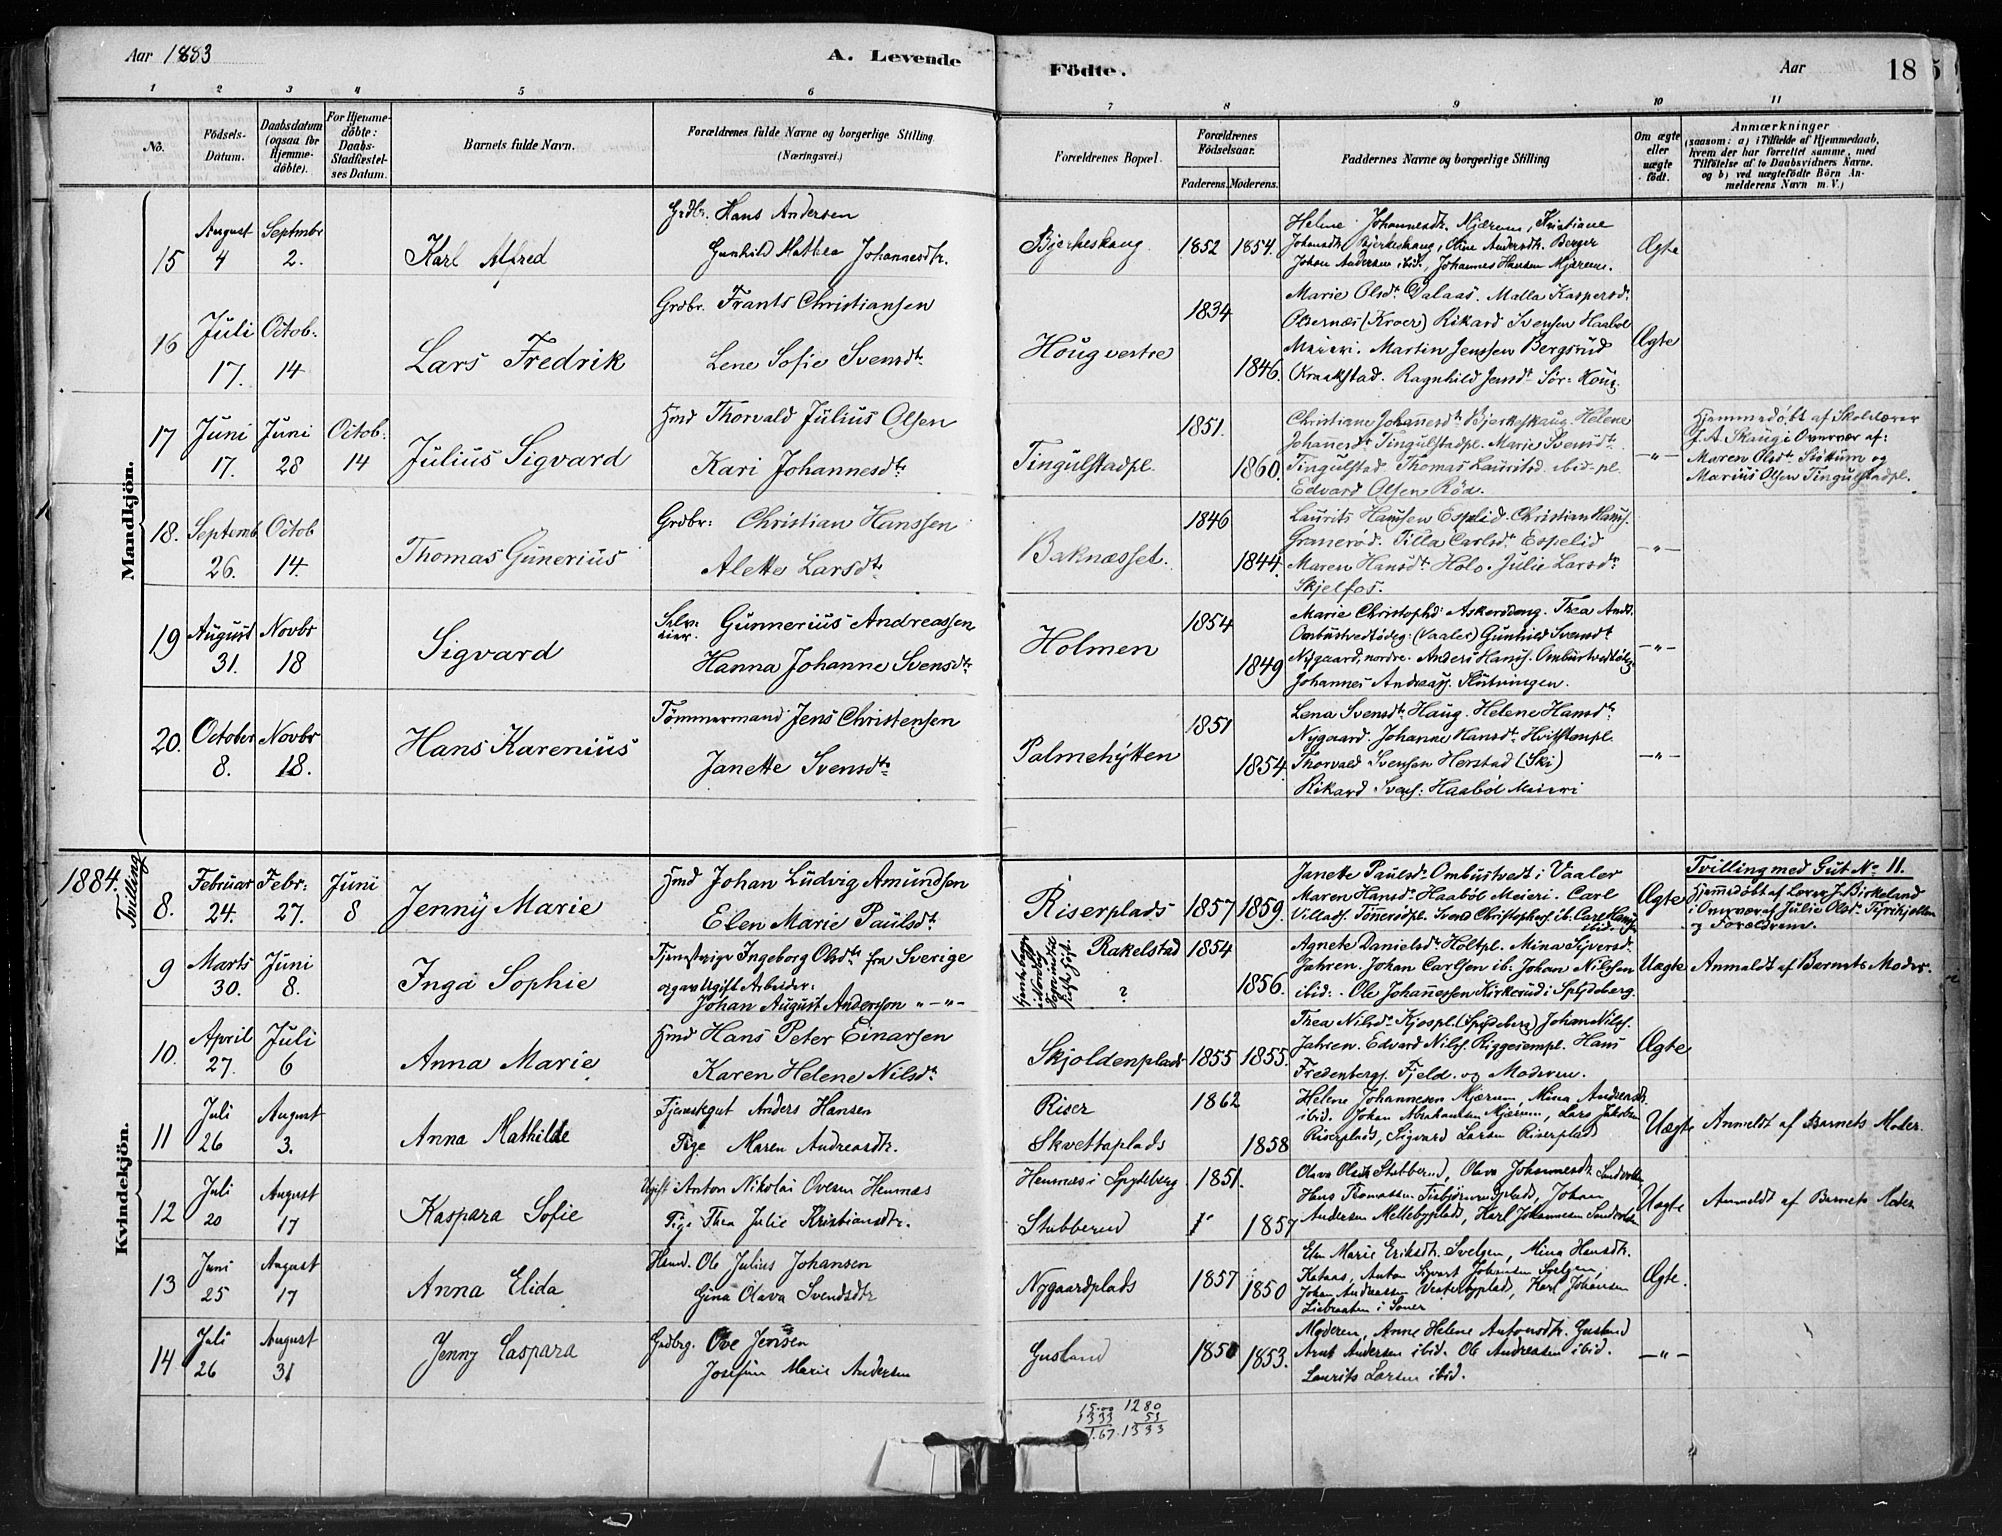 Aar 1883
A. Levende
Födte.
Aar
18
5
1 2 3 4 5 6 7 8 9 10 11
No.
Födsels-Datum.
Daabsdatum (ogsaa for Hjemme-döbte).
For Hjemme-döbte: Daabs-Stadfæstel-ses Datum.
Barnets fulde Navn.
Forældrenes fulde Navne og borgerlige Stilling
(Næringsvei.)
Forældrenes Bopæl.
Forældrenes Födselsaar.
Faderens. Moderens.
Faddernes Navne og borgerlige Stilling
Om ægte eller uægte födt.
Anmærkninger
(saasom: a) i Tilfælde af Hjemmedaab,
hvem der har forrettet samme, med
Tilföielse af to Daabsvidners Navne.
og b) ved uægtefödte Börn An-
melderens Navn m. V.)
Mandkjön.
15 August 4 Septmbr 2. Karl Alfred
Grdbr. Hans Andersen
Gunhild Mathea Johannesdtr.
Bjerkeskaug 1852 1854.
Helene Johannesdtr. Mjærum, Kristiane
Johansdtr. Bjerkeskaug, Oline Andersdtr. Berger
Johan Andersen ibid., Johannes Hansen Mjærum.
Ægte
16 Juli 17. Octob: 14 Lars Fredrik
Grdbr. Frants Christiansen
Lene Sofie Svensdtr
Houg vestre 1834 1846.
Marie Olsdtr Dalaas. Malla Kaspersdr
(Kroer) Rikard Svensen Haabøl
Meieri. Martin Jenssen Bergsrud
Kraakstad. Ragnhild Jensdtr Sør: Houg.
Ægte
17 Juni 17. Juni 28 Octob: 14 Julius Sigvard
Hmd Thorvald Julius Olsen
Kari Johannesdtr
Tingulstadpl. 1851. 1860.
Christiane Johannesdtr Bjerkeskaug. Helene
Johannesdtr Tingulstadpl. Marie Svensdtr
Tingulstad. Thomas Lauritsd. ibid. pl.
Edvard Olsen Rød.
-"-
Hjemmedøbt af Skolelærer
J. A. Skaug i Overvær af:
Maren Olsdtr Siökum og
Marius Olsen Tingulstadpl.
18. Septemb 26. Octob 14. Thomas Gunerius
Grdbr: Christian Hanssen
Alette Larsdtr
Baknæsset. 1846 1844.
Laurits Hanssen Espelid. Christian Hanss.
Granerød. Tilla Carlsdtr Espelid
Maren Hansdtr Holo. Julie Larsdtr
Skjelfos.
-"-
19 August 31. Novbr 18 Sigvard
Selv:eier. Gunnerius Andreassen
Hanna Johanne Svensdtr
Holmen 1854 1849
Marie Christophd. Askerødeng. Thea Andr.
Ombustvedtødeg: (Vaaler) Gunhild Svensdtr
Nygaard, nordre. Anders Hanss. Ombustvedtödeg.
Johannes Andreass. Slutningen.
-"-
20. October 8. Novbr 18. Hans Karenius
Tömmermand Jens Christensen
Janette Svensdtr
Palmehytten 1851 1854
Lena Svensdtr Haug. Helene Hansdtr
Nygaard. Johanne Hansdtr Hvitstenpl.
Thorvald Svensen Herstad (Ski)
Rikard Svens: Haabøl Meieri
-"-
1884.
Kvindekjön.
Tvilling
8. Februar 24. Febr: 27. Juni 8 Jenny Marie
Hmd Johan Ludvig Amundsen
Elen Marie Paulsdtr
Riserplads 1857 1859.
Janette Paulsdtr Ombustvedt i Vaaler
Maren Hansdtr Haabøl Meieri. Carl
Villads. Tönnerødpl. Svend Christophers. ib: Carl Hans. ibid.
Ægte
Tvilling med Gut No 11.
Hjemmedøbt af Lærer J. Birkeland
i Overvær af Julie Olsdtr Tyrihjellen
og Forældrene.
9 Marts 30. Juni 8. Inga Sophie
Tjenestepige Ingeborg Olsdtr fra Sverige
og au Ugift Arbeider:
Johan August Andersson "-"-
Rakelstad
?
1854 1856.
Agnete Danielsdtr Holtpl. Mina Syversdr.
Jahren. Johan Carlsen ib: Johan Nilssen
ibid: Ole Johannessen Kirkerud i Spydeberg.
Uægte Anmeldt af Barnets Moder.
10. April 27. Juli 6 Anna Marie
Hmd Hans Peter Einarsen
Karen Helene Nilsdtr
Skjoldenplads 1855 1855.
Thea Nilsdtr Kjospl. (Spydeberg) Johan Nilss.
Jahren. Edvard Nilss. Riggesempl. Hans
Fredenbergs. Fjeld. og Moderen.
Ægte
11 Juli 26 August 3. Anna Mathilde
Tjenestegut Anders Hansen
Pige Maren Andreasdtr.
Riser
Skvettaplads
1862 1858
Helene Johannesen Mjærum, Mina Andreasdtr.
ibid. Johan Abrahamsen Mjærum, Lars Jakobsen
Riserplads, Sigvard Larsen Riserplad
Uægte Anmeldt af Barnets Moder.
12 Juli 20 August 17 Kaspara Sofie
Ugift Anton Nikolai Ovesen Hemnæs
Pige Thea Julie Kristiansdtr.
Hemnæs i Spydeberg
Stubberud
1851. 1857
Olava Olsdtr Stubberud, Olava Johannesdtr. Sandvolden
Hans Thomassen Tisbjørnrudplads, Johan
Andersen Mellebyplads, Karl Johannesen Sandvolden
Uægte Anmeldt af Barnets Moder
13 Juni 25 August 17 Anna Elida
Husmd. Ole Julius Johansen
Gina Olava Svendsdtr
Nygaardplads 1857 1850
Elen Marie Eriksdtr. Svelgen, Mina Hansdtr.
Kataas, Anton Sigvart Johansen Svelgen,
Johan Andreassen Vesterbyplad, Karl Johansen
Liabraaten i Soner
Ægte.
14 Juli 26 August 31 Jenny Caspara
Grdbrg. Ove Jensen
Josefine Marie Andersen
Gusland 1850 1853.
Moderen, Anne Helene Antonsdtr. Gusland
Arnt Andersen ibid. Ole Andreasen ibid.
Laurits Larsen ibid.
-"-
15.00 1280
1333 53
1.67. 1333